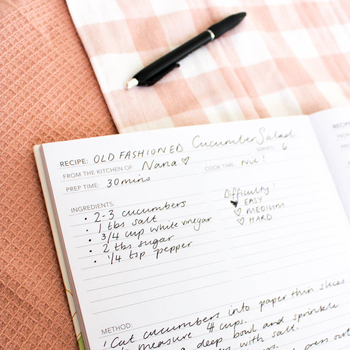 RECIPE: OLD FASHIONED Cucumber Salad
SERVES: 6
FROM THE KITCHEN OF Nana ♡ COOK TIME: Nil!
PREP TIME: 30 mins
INGREDIENTS:
• 2-3 cucumbers
• 1 tbs salt
• 3/4 cup white vinegar
• 2 tbs sugar
• 1/4 tsp pepper
Difficulty
♥ EASY
♡ MEDIUM
♡ HARD
METHOD:
Cut cucumbers into paper thin slices
measure 4 cups.
deep bowl and sprinkle
with salt.
RECIPE
FROM THE
PREP TIM
INGREDI